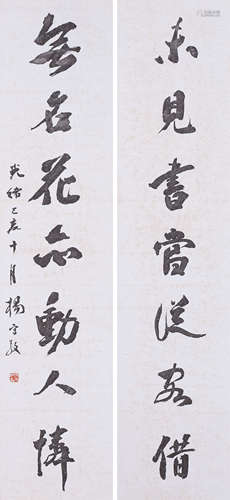 未見書當從客借
無名花亦動人憐
光緒己亥十月楊守敬